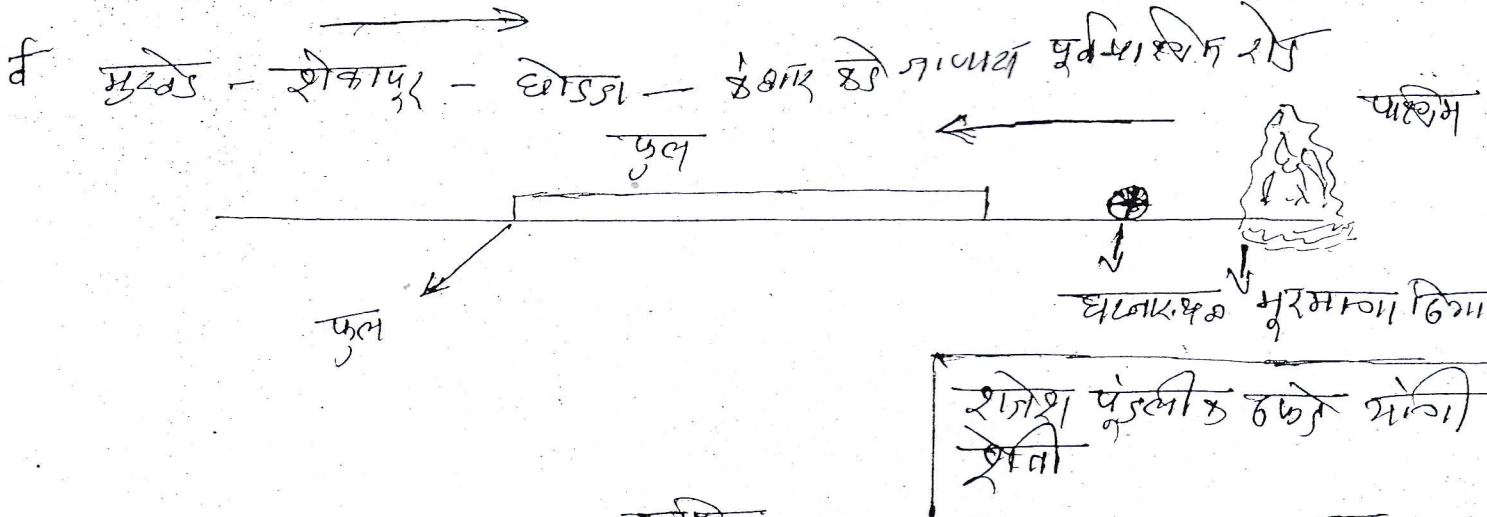 र्व मुरखेड - शेकापूर - घोडजा - कंधार कडे जाणारा पूर्व पश्चिम रोड
पश्चिम
फुल
फुल
घटनास्थळ मूरमाचा ढिगा
राजेश पुंडलीक डफडे यांची
शेती